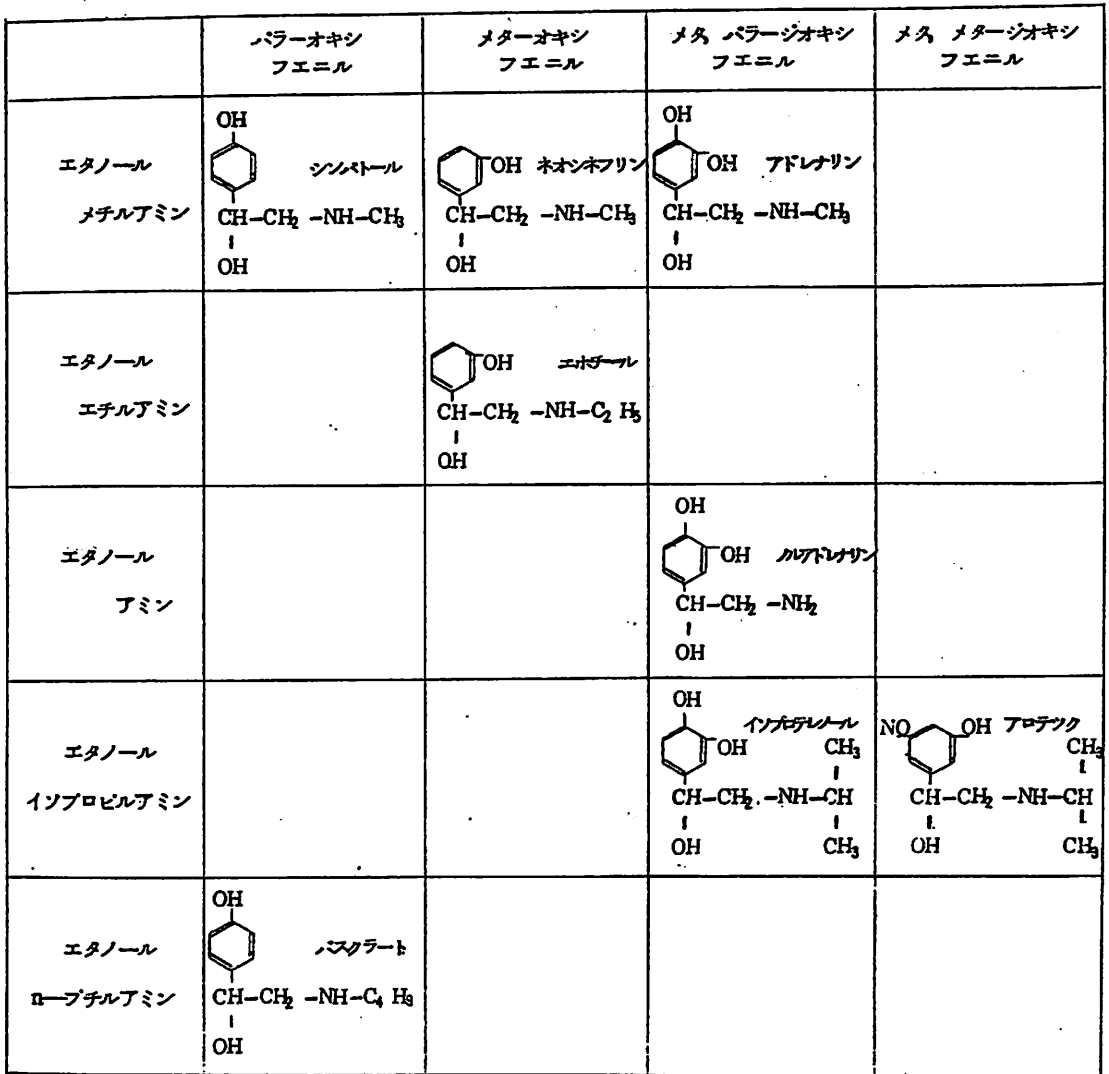 パラーオキシ
フエニル
メターオキシ
フエニル
メタ, パラージオキシ
フエニル
メタ, メタージオキシ
フエニル
エタノール
メチルアミン
OH
シンパトール
CH-CH₂ -NH-CH₃
OH
OH ネオシネフリン
CH-CH₂ -NH-CH₃
OH
OH
OH アドレナリン
CH-CH₂ -NH-CH₃
OH
エタノール
エチルアミン
OH エホチール
CH-CH₂ -NH-C₂ H₅
OH
エタノール
アミン
OH
OH ノルアドレナリン
CH-CH₂ -NH₂
OH
エタノール
イソプロピルアミン
OH
イソプロテレノール
OH CH₃
CH-CH₂ -NH-CH
OH CH₃
NO OH アロテック
CH₃
CH-CH₂ -NH-CH
OH CH₃
エタノール
n-ブチルアミン
OH
バスクラート
CH-CH₂ -NH-C₄ H₉
OH